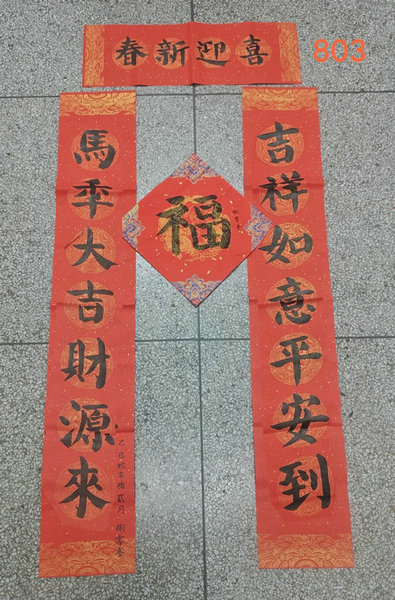 803
喜迎新春
吉祥如意平安到
福
馬秊大吉財源來
乙巳蛇年拾貳月 捌零叁